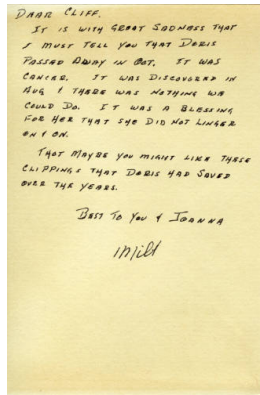 DEAR CLIFF.
IT IS WITH GREAT SADNESS THAT
I MUST TELL YOU THAT DORIS
PASSED AWAY IN OCT. IT WAS
CANCER. IT WAS DISCOVERED IN
AUG & THERE WAS NOTHING WE
COULD DO. IT WAS A BLESSING
FOR HER THAT SHE DID NOT LINGER
ON & ON.
THOT MAYBE YOU MIGHT LIKE THESE
CLIPPINGS THAT DORIS HAD SAVED
OVER THE YEARS.
BEST TO YOU & JOANNA
Milt